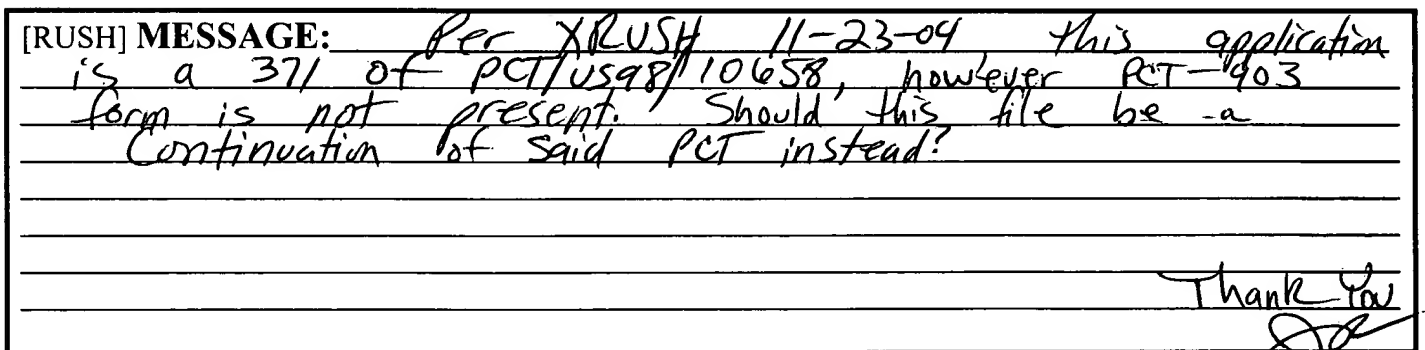 [RUSH] MESSAGE: Per XRUSH 11-23-04, this application
is a 371 of PCT/US98/10658, however PCT-903
form is not present. Should this file be a
Continuation of said PCT instead?
Thank You